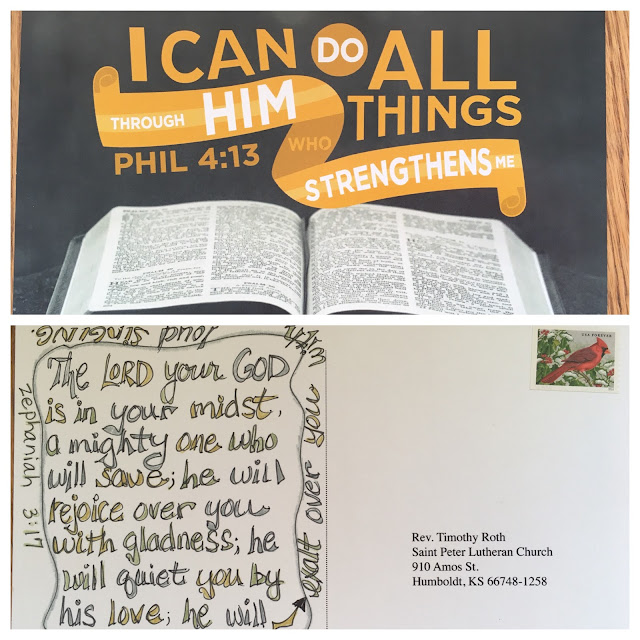 I CAN DO ALL
THINGS
THROUGH HIM
WHO
STRENGTHENS ME
PHIL 4:13
The LORD your GOD
is in your midst,
a mighty one who
will save; he will
rejoice over you
with gladness; he
will quiet you by
his love; he will
exalt over you
with
loud singing.
Zephaniah 3:17
USA FOREVER
Rev. Timothy Roth
Saint Peter Lutheran Church
910 Amos St.
Humboldt, KS 66748-1258